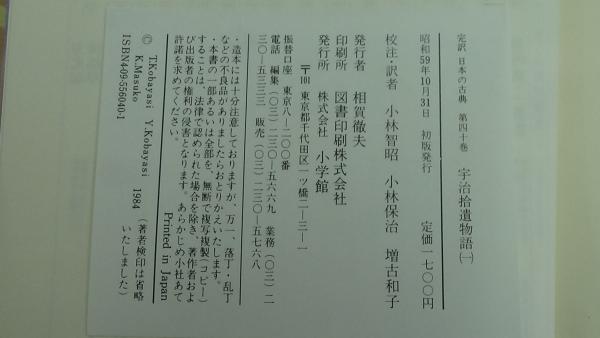 完訳 日本の古典 第四十巻 宇治拾遺物語㈠
昭和59年10月31日 初版発行 定価一七〇〇円
校注・訳者 小林智昭 小林保治 増古和子
発行者 相賀徹夫
印刷所 図書印刷株式会社
発行所 株式会社 小学館
〒101 東京都千代田区一ツ橋二ー三ー一
振替口座 東京八ー二〇〇番
電話 編集(〇三)二三〇ー五六六九 業務(〇三)二
三〇ー五三三三 販売(〇三)二三〇ー五七六八
・造本には十分注意しておりますが、万一、落丁・乱丁
などの不良品がありましたらおとりかえいたします。
・本書の一部あるいは全部を、無断で複写複製(コピー)
することは、法律で認められた場合を除き、著作者およ
び出版者の権利の侵害となります。あらかじめ小社あて
許諾を求めてください。
Printed in Japan
© T.Kobayasi Y.Kobayasi
K.Masuko 1984
(著者検印は省略
いたしました)
ISBN4-09-556040-1